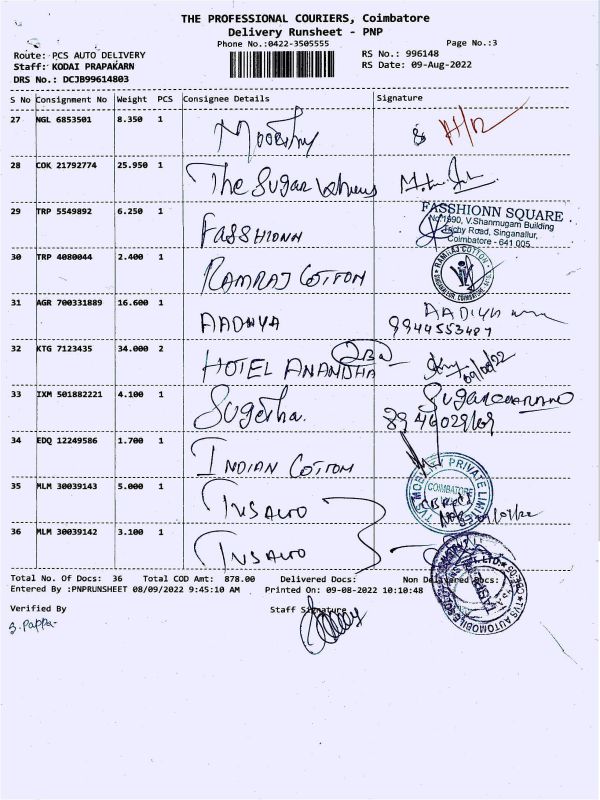 THE PROFESSIONAL COURIERS, Coimbatore
Delivery Runsheet - PNP
Phone No.:0422-3505555
Page No.:3
Route: PCS AUTO DELIVERY
RS No.: 996148
Staff: KODAI PRAPAKARN
RS Date: 09-Aug-2022
DRS No.: DCJB99614803
S No Consignment No Weight PCS Consignee Details Signature
27 NGL 6853501 8.350 1
Moorthy
28 COK 21792774 25.950 1
The Sugar
29 TRP 5549892 6.250 1
FASSHIONN
FASSHIONN SQUARE
No.1990, V.Shanmugam Building
Trichy Road, Singanallur,
Coimbatore - 641 005.
30 TRP 4080044 2.400 1
RAMRAJ COTTON
RAMRAJ COTTON
31 AGR 700331889 16.600 1
AADHYA
9944553487
32 KTG 7123435 34.000 2
HOTEL ANANDHA
09/08/22
33 IXM 501882221 4.100 1
34 EDQ 12249586 1.700 1
INDIAN COTTON
35 MLM 30039143 5.000 1
TVS AUTO
TVS MOBILITY PRIVATE LIMITED
COIMBATORE
36 MLM 30039142 3.100 1
TVS AUTO
Total No. Of Docs: 36 Total COD Amt: 878.00 Delivered Docs: Non Delivered Docs:
Entered By :PNPRUNSHEET 08/09/2022 9:45:10 AM Printed On: 09-08-2022 10:10:48
Verified By Staff Signature
S. Pappa